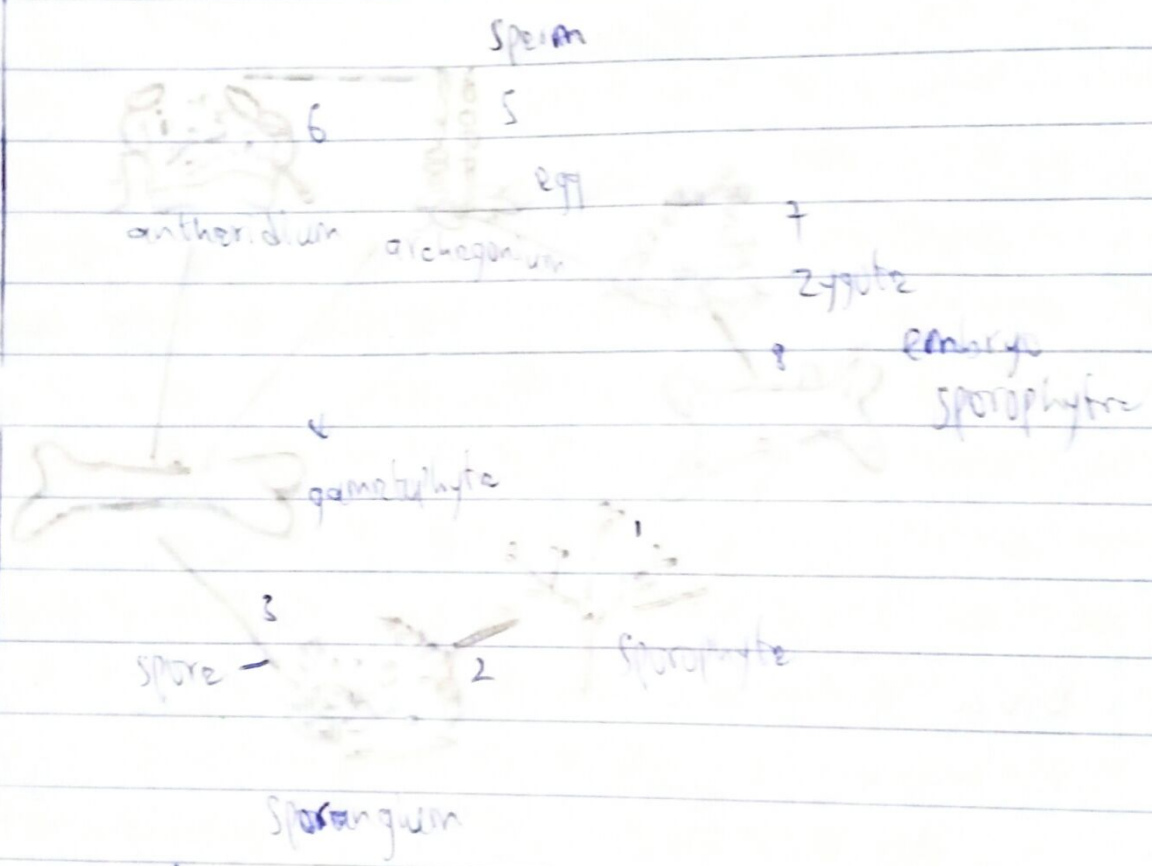 Sperm
6
5
egg
antheridium
archegonium
7
Zygote
embryo
8
sporophyte
gametophyte
1
3
sporophyte
spore
2
Sporangium